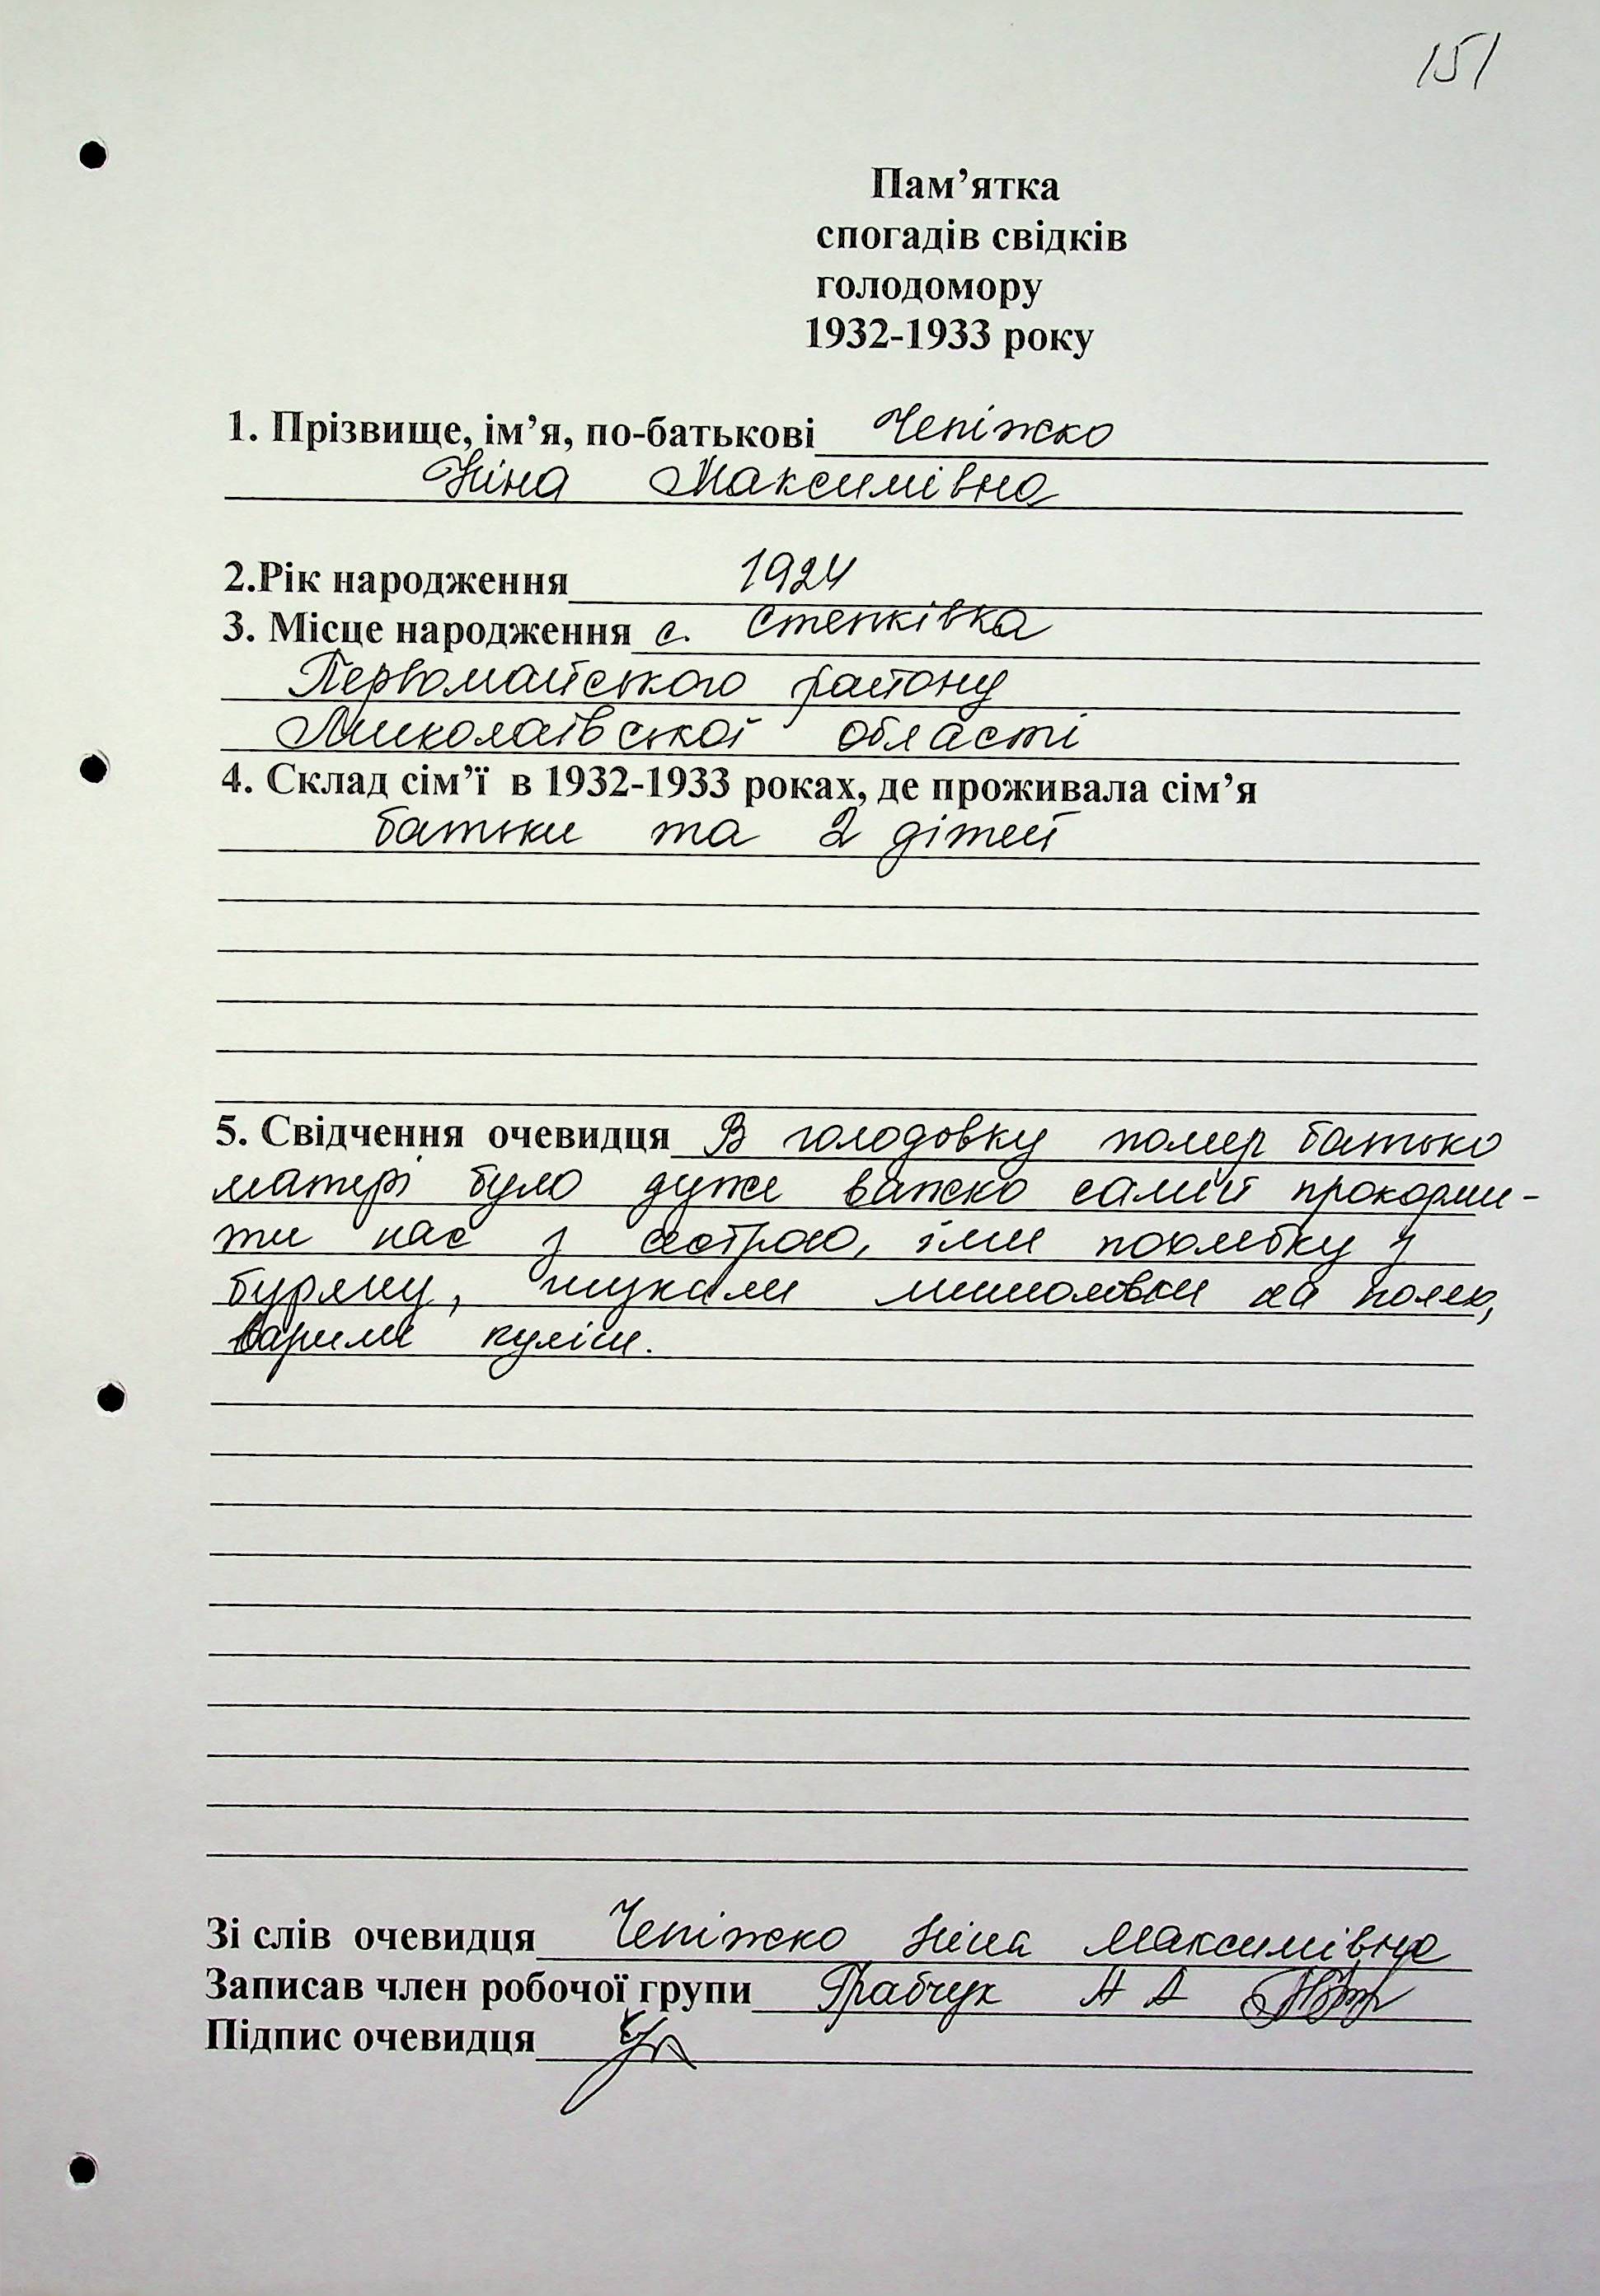 151
Пам’ятка
спогадів свідків
голодомору
1932-1933 року
1. Прізвище, ім’я, по-батькові Чепіжко
Ніна Максимівна
2.Рік народження 1924
3. Місце народження с. Степківка
Первомайського району
Миколаївської області
4. Склад сім’ї в 1932-1933 роках, де проживала сім’я
батьки та 2 дітей
5. Свідчення очевидця В голодовку помер батько
матері було дуже важко самій прокорми-
ти нас з сестрою, їли похлебку з
буряну, шукали мишоловки на полях,
варили куліш.
Зі слів очевидця Чепіжко Ніна Максимівна
Записав член робочої групи Грабчук А А
Підпис очевидця